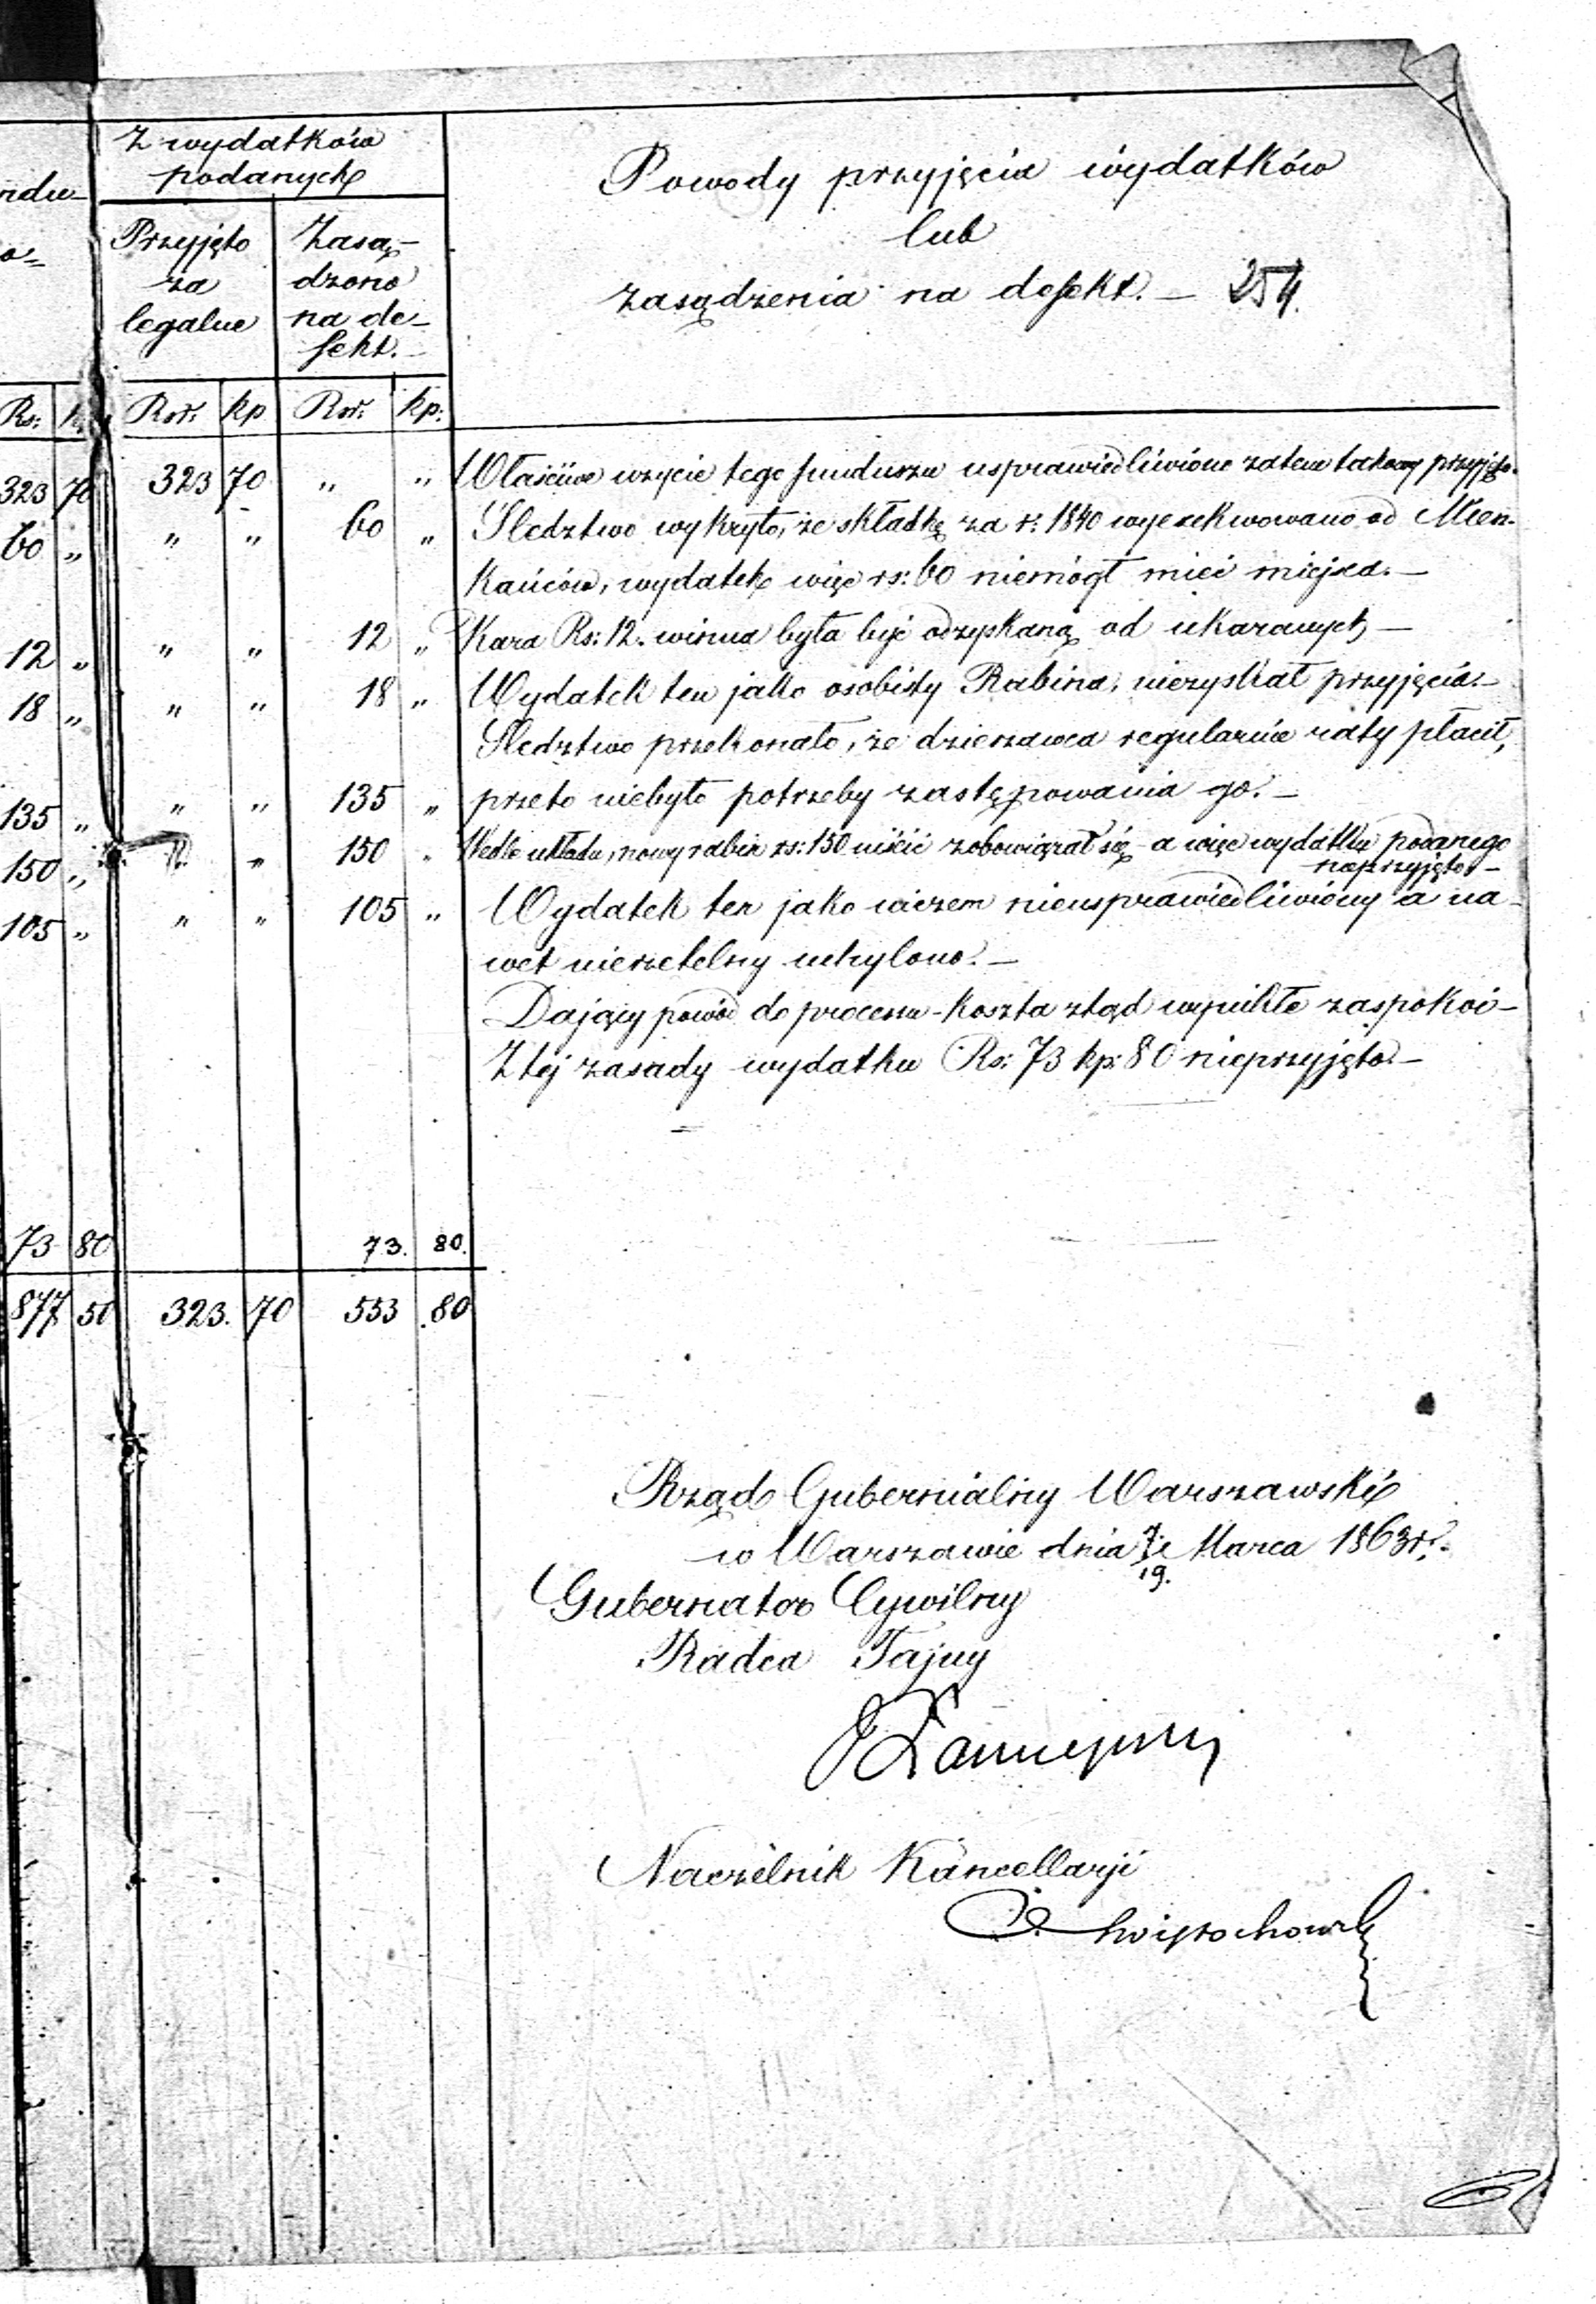 Z wydatków
podanych
Powody przyjęcia wydatków
lub
zasądzenia na defekt. — 254.
Przyjęto
za
legalne
Zasą-
dzono
na de-
fekt. —
Rs: k Rsr. kp Rsr. kp.
323 70 323 70 „ „ Właściwe użycie tego funduszu usprawiedliwione zatem takowy przyjęto.
60 „ „ „ 60 „ Śledztwo wykryło, że składkę za r. 1840 wyexekwowano od Miesz-
kańców, wydatek więc rs: 60 niemógł mieć miejsca. —
12 „ „ „ 12 „ Kara Rs: 12. winna była być odzyskaną od ukaranych —
18 „ „ „ 18 „ Wydatek ten jako osobisty Rabina, niezyskał przyjęcia. —
Śledztwo przekonało, że dzierzawca regularnie raty płacił,
135 „ „ „ 135 „ przeto niebyło potrzeby zastępowania go. —
150 „ „ „ 150 „ Wedle układu, nowy rabin rs: 150 uiścić zobowiązał się – a więc wydatku podanego
nieprzyjęto. —
105 „ „ „ 105 „ Wydatek ten jako niczem nieusprawiedliwiony a na-
wet nierzetelny uchylono. —
Dający powód do processu – koszta ztąd wynikłe zaspokoi –
Z tej zasady wydatku Rs: 73 kp: 80 nieprzyjęto. —
73 80 73. 80.
877 50 323. 70 553 80
Rząd Gubernialny Warszawski
w Warszawie dnia 7/19. Marca 1863 r.
Gubernator Cywilny
Radca Tajny
Naczelnik Kancellarji